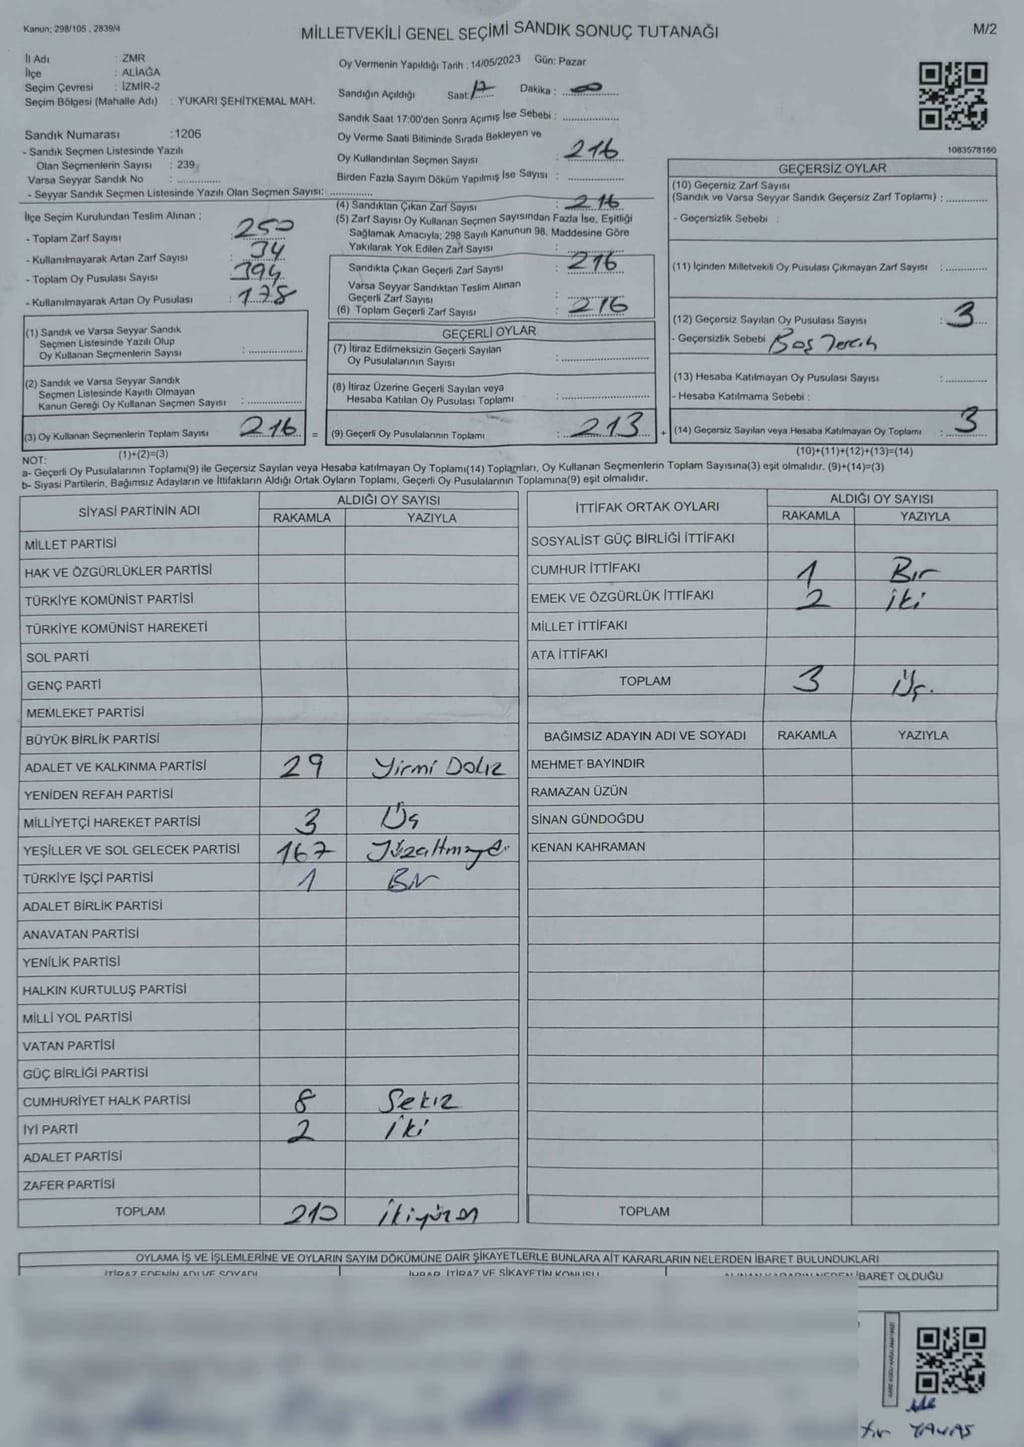 Kanun; 298/105 . 2839/4
MİLLETVEKİLİ GENEL SEÇİMİ SANDIK SONUÇ TUTANAĞI
M/2
İl Adı : ZMR
İlçe : ALİAĞA
Seçim Çevresi : İZMİR-2
Seçim Bölgesi (Mahalle Adı) : YUKARI ŞEHİTKEMAL MAH.
Sandık Numarası :1206
- Sandık Seçmen Listesinde Yazılı
Olan Seçmenlerin Sayısı : 239
Varsa Seyyar Sandık No : ............
- Seyyar Sandık Seçmen Listesinde Yazılı Olan Seçmen Sayısı: ............
Oy Vermenin Yapıldığı Tarih : 14/05/2023 Gün: Pazar
Sandığın Açıldığı Saat: 17 Dakika : 00
Sandık Saat 17:00'den Sonra Açımış İse Sebebi : ............
Oy Verme Saati Bitiminde Sırada Bekleyen ve
Oy Kullandırılan Seçmen Sayısı : 216
Birden Fazla Sayım Döküm Yapılmış İse Sayısı : ............
1083578160
İlçe Seçim Kurulundan Teslim Alınan ;
- Toplam Zarf Sayısı : 250
- Kullanılmayarak Artan Zarf Sayısı : 34
- Toplam Oy Pusulası Sayısı : 394
- Kullanılmayarak Artan Oy Pusulası : 178
(1) Sandık ve Varsa Seyyar Sandık
Seçmen Listesinde Yazılı Olup
Oy Kullanan Seçmenlerin Sayısı : ............
(2) Sandık ve Varsa Seyyar Sandık
Seçmen Listesinde Kayıtlı Olmayan
Kanun Gereği Oy Kullanan Seçmen Sayısı : ............
(3) Oy Kullanan Seçmenlerin Toplam Sayısı : 216 =
(1)+(2)=(3)
(4) Sandıktan Çıkan Zarf Sayısı : 216
(5) Zarf Sayısı Oy Kullanan Seçmen Sayısından Fazla İse, Eşitliği
Sağlamak Amacıyla; 298 Sayılı Kanunun 98. Maddesine Göre
Yakılarak Yok Edilen Zarf Sayısı : ............
Sandıkta Çıkan Geçerli Zarf Sayısı : 216
Varsa Seyyar Sandıktan Teslim Alınan
Geçerli Zarf Sayısı : ............
(6) Toplam Geçerli Zarf Sayısı : 216
GEÇERLİ OYLAR
(7) İtiraz Edilmeksizin Geçerli Sayılan
Oy Pusulalarının Sayısı : ............
(8) İtiraz Üzerine Geçerli Sayılan veya
Hesaba Katılan Oy Pusulası Toplamı : ............
(9) Geçerli Oy Pusulalarının Toplamı : 213 +
GEÇERSİZ OYLAR
(10) Geçersiz Zarf Sayısı
(Sandık ve Varsa Seyyar Sandık Geçersiz Zarf Toplamı) : ............
- Geçersizlik Sebebi :
(11) İçinden Milletvekili Oy Pusulası Çıkmayan Zarf Sayısı : ............
(12) Geçersiz Sayılan Oy Pusulası Sayısı : 3
- Geçersizlik Sebebi Boş Tercih
(13) Hesaba Katılmayan Oy Pusulası Sayısı : ............
- Hesaba Katılmama Sebebi :
(14) Geçersiz Sayılan veya Hesaba Katılmayan Oy Toplamı : 3
(10)+(11)+(12)+(13)=(14)
NOT:
a- Geçerli Oy Pusulalarının Toplamı(9) ile Geçersiz Sayılan veya Hesaba katılmayan Oy Toplamı(14) Toplamları, Oy Kullanan Seçmenlerin Toplam Sayısına(3) eşit olmalıdır. (9)+(14)=(3)
b- Siyasi Partilerin, Bağımsız Adayların ve İttifakların Aldığı Ortak Oyların Toplamı, Geçerli Oy Pusulalarının Toplamına(9) eşit olmalıdır.
SİYASİ PARTİNİN ADI ALDIĞI OY SAYISI
RAKAMLA YAZIYLA
MİLLET PARTİSİ
HAK VE ÖZGÜRLÜKLER PARTİSİ
TÜRKİYE KOMÜNİST PARTİSİ
TÜRKİYE KOMÜNİST HAREKETİ
SOL PARTİ
GENÇ PARTİ
MEMLEKET PARTİSİ
BÜYÜK BİRLİK PARTİSİ
ADALET VE KALKINMA PARTİSİ 29 Yirmi Dokız
YENİDEN REFAH PARTİSİ
MİLLİYETÇİ HAREKET PARTİSİ 3 Üç
YEŞİLLER VE SOL GELECEK PARTİSİ 167
TÜRKİYE İŞÇİ PARTİSİ 1 Bir
ADALET BİRLİK PARTİSİ
ANAVATAN PARTİSİ
YENİLİK PARTİSİ
HALKIN KURTULUŞ PARTİSİ
MİLLİ YOL PARTİSİ
VATAN PARTİSİ
GÜÇ BİRLİĞİ PARTİSİ
CUMHURİYET HALK PARTİSİ 8 Sekiz
İYİ PARTİ 2 iki
ADALET PARTİSİ
ZAFER PARTİSİ
TOPLAM 210 ikiyüz on
İTTİFAK ORTAK OYLARI ALDIĞI OY SAYISI
RAKAMLA YAZIYLA
SOSYALİST GÜÇ BİRLİĞİ İTTİFAKI
CUMHUR İTTİFAKI 1 Bir
EMEK VE ÖZGÜRLÜK İTTİFAKI 2 iki
MİLLET İTTİFAKI
ATA İTTİFAKI
TOPLAM 3 Üç.
BAĞIMSIZ ADAYIN ADI VE SOYADI RAKAMLA YAZIYLA
MEHMET BAYINDIR
RAMAZAN ÜZÜN
SİNAN GÜNDOĞDU
KENAN KAHRAMAN
TOPLAM
OYLAMA İŞ VE İŞLEMLERİNE VE OYLARIN SAYIM DÖKÜMÜNE DAİR ŞİKAYETLERLE BUNLARA AİT KARARLARIN NELERDEN İBARET BULUNDUKLARI
İTİRAZ EDENİN ADI VE SOYADI İHBAR, İTİRAZ VE ŞİKAYETİN KONUSU ALINAN KARARIN NEDEN İBARET OLDUĞU
YAVAŞ